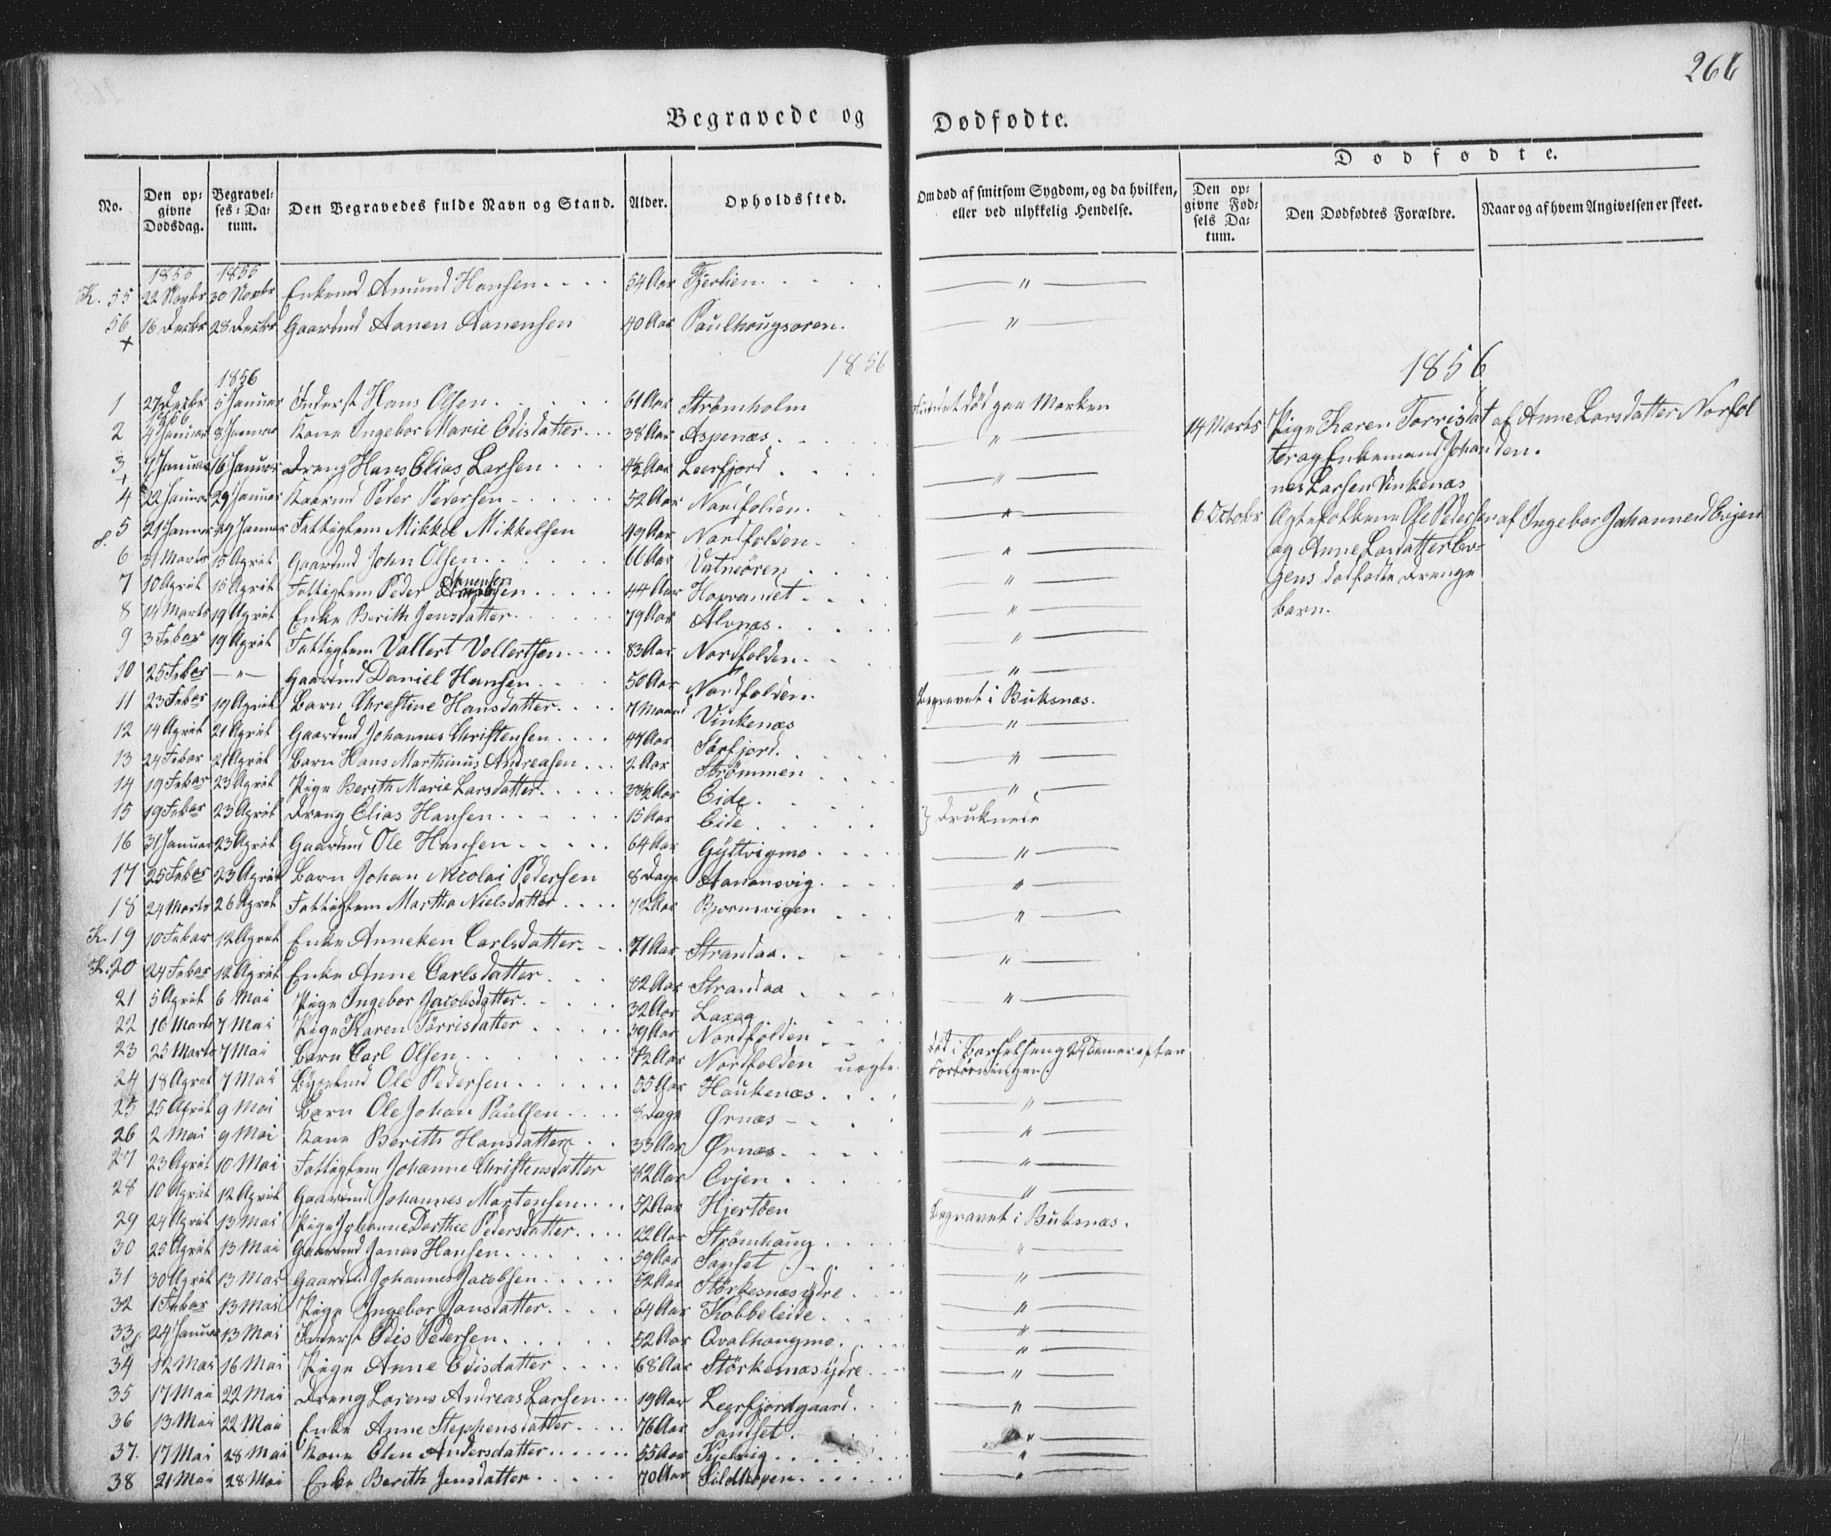 266
Begravede og Dødfødte.
Dødfødte.
No.
Den opgivne Dødsdag.
Begravelses-Datum.
Den Begravedes fulde Navn og Stand.
Alder.
Opholdssted.
Om død af smitsom Sygdom, og da hvilken, eller ved ulykkelig Hendelse.
Den opgivne Fødsels Datum.
Den Dødfødtes Forældre.
Naar og af hvem Angivelsen er skeet.
1855 1855
K. 55 22 Novbr 30 Novbr Enkemd Amund Hansen 54 Aar Tjerlien "
56 16 Decbr 28 Decbr Gaardmd Aanen Aanensen 40 Aar Paulhougsøren. "
1856
1856
1856
1 27 Decbr 5 Januar Inderst Hans Olsen 61 Aar Strømholm fundet død paa Marken
1856
2 4 Januar 8 Januar Kone Ingebor Marie Edisdatter 38 Aar Aspenæs "
3 7 Januar 16 Januar Dreng Hans Elias Larsen 4½ Aar Leerfjord "
4 22 Januar 29 Januar Gaardmd Peder Pedersen 52 Aar Nordfolden "
5 21 Januar 29 Januar Fattiglem Mikkel Mikkelsen 49 Aar Nordfolden "
6 31 Marts 15 April Gaardmd John Olsen 66 Aar Vatneøren "
7 10 April 15 April Fattiglem Peder Aanensen 44 Aar "
8 14 Marts 19 April Enke Berith Jensdatter 79 Aar Alvnæs "
9 3 Febar 19 April Fattiglem Vollert Vollertsen 83 Aar Nordfolden "
10 25 Febar " Gaardmd Daniel Hansen 50 Aar Nordfolden Begravet i Buksnæs.
11 23 Febar 19 April Barn Christine Hansdatter 7 Maaned Vinkenæs "
12 14 April 21 April Gaardmd Johannes Christensen 47 Aar Sørfjord "
13 24 Febar 21 April Barn Hans Marthinus Andreasen 2 Aar Strømmen "
14 19 Febar 23 April Pige Berith Marie Larsdatter 30½ Aar Eide
15 19 Febar 23 April Dreng Elias Hansen 15 Aar Eide } Druknede
16 31 Januar 23 April Gaardmd Ole Hansen 64 Aar Gyltvigmo "
17 25 Febar 23 April Barn Johan Nicolai Pedersen 8 Dage Aanansvig "
18 24 Marts 26 April Fattiglem Martha Nielsdatter 72 Aar Bjørnsvigen "
K. 19 10 Febar 12 April Enke Anneken Carlsdatter 71 Aar Strandaa "
K. 20 24 Febar 12 April Enke Anne Carlsdatter 82 Aar Strandaa "
21 5 April 6 Mai Pige Ingebor Jacobsdatter 32 Aar Laxaa
22 16 Marts 7 Mai Pige Karen Tørrisdatter 39 Aar Nordfolden død i Barselseng 2 Timer efter Forløsningen
23 25 Marts 7 Mai Barn Carl Olsen Nordfolden uægte
24 18 April 7 Mai Bygslmd Ole Pedersen 55 Aar Haukenæs "
25 25 April 9 Mai Barn Ole Johan Paulsen 8 Dage Ørnæs "
26 2 Mai 9 Mai Kone Berith Hansdatter 33 Aar Ørnæs "
27 23 April 10 Mai Fattiglem Johanne Christensdatter 82 Aar Evjen "
28 10 April 12 April Gaardmd Johannes Mortensen 52 Aar Hjertøen Begravet i Buksnæs.
29 24 April 13 Mai Pige Johanne Dorthee Pedersdatter 22 Aar Strømhaug "
30 25 April 13 Mai Gaardmd Jonas Hansen 59 Aar Sandset "
31 30 April 13 Mai Gaardmd Johannes Jacobsen 52 Aar Størkesnæs ydre "
32 1 Febar 13 Mai Pige Ingebor Jonsdatter 64 Aar Kobbeleide "
33 24 Januar 13 Mai Inderst Edis Pedersen 52 Aar Qvalhougmo "
34 12 Mai 16 Mai Pige Anne Edisdatter 68 Aar Størkesnæs ydre "
35 17 Mai 22 Mai Dreng Lorens Andreas Larsen 19 Aar Leerfjordgaard "
36 13 Mai 22 Mai Enke Anne Stephensdatter 76 Aar Sandset "
37. 17 Mai 28 Mai Kone Elen Andersdatter 55 Aar Kjelvig "
38 21 Mai 28 Mai Enke Berith Jensdatter 70 Aar Sildhopen "
14 Marts Pige Karen Torrisdat af Anne Larsdatter Norfol
ter og Enkemand Johan den.
nes Larsen Vinkenæs
6 Octobr Ægtefolkene Ole Pedersen af Ingebor Johannesd Evjen
og Anne Larsdatter Ev
jens dødfødte Drenge
barn.